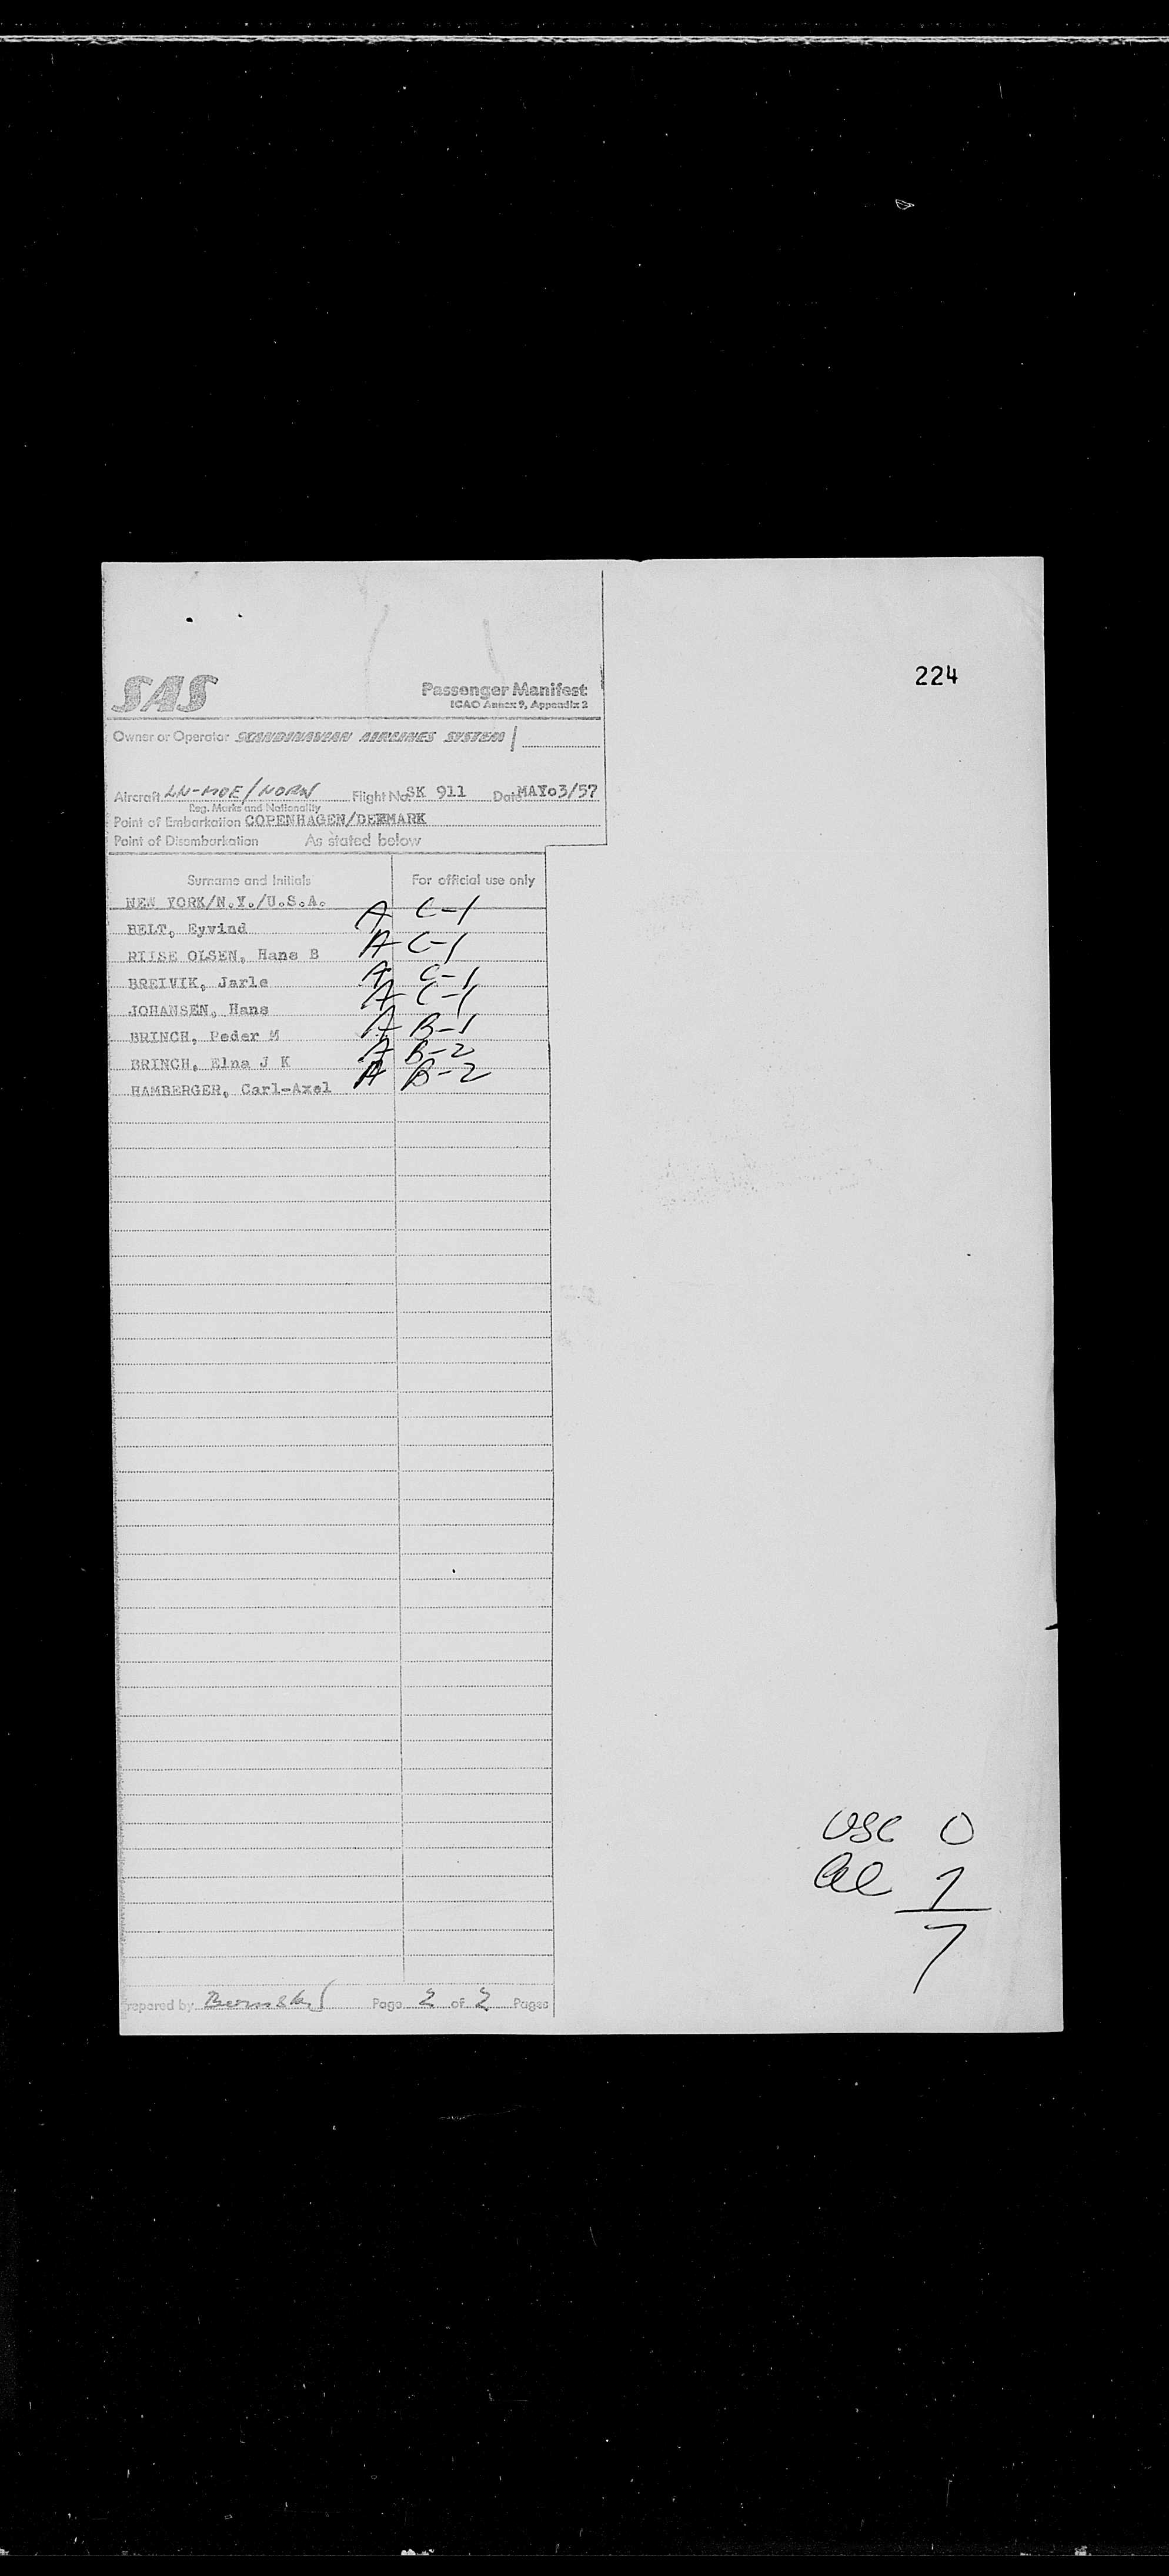 224
SAS
Passenger Manifest
ICAO Annex 9, Appendix 2
Owner or Operator SCANDINAVIAN AIRLINES SYSTEM
Aircraft LN-MOE/NORW Flight No. SK 911 Date MAY 03/57
Reg. Marks and Nationality
Point of Embarkation COPENHAGEN/DENMARK
Point of Disembarkation As stated below
Surname and Initials For official use only
NEW YORK/N.Y./U.S.A.
BELT, Eyvind A C-1
RIISE OLSEN, Hans B A C-1
BREIVIK, Jarle A C-1
JOHANSEN, Hans A C-1
BRINCH, Peder M A B-1
BRINCH, Elna J K A B-2
HAMBERGER, Carl-Axel A B-2
USC 0
Al 7
7
Prepared by Page 2 of 2 Pages